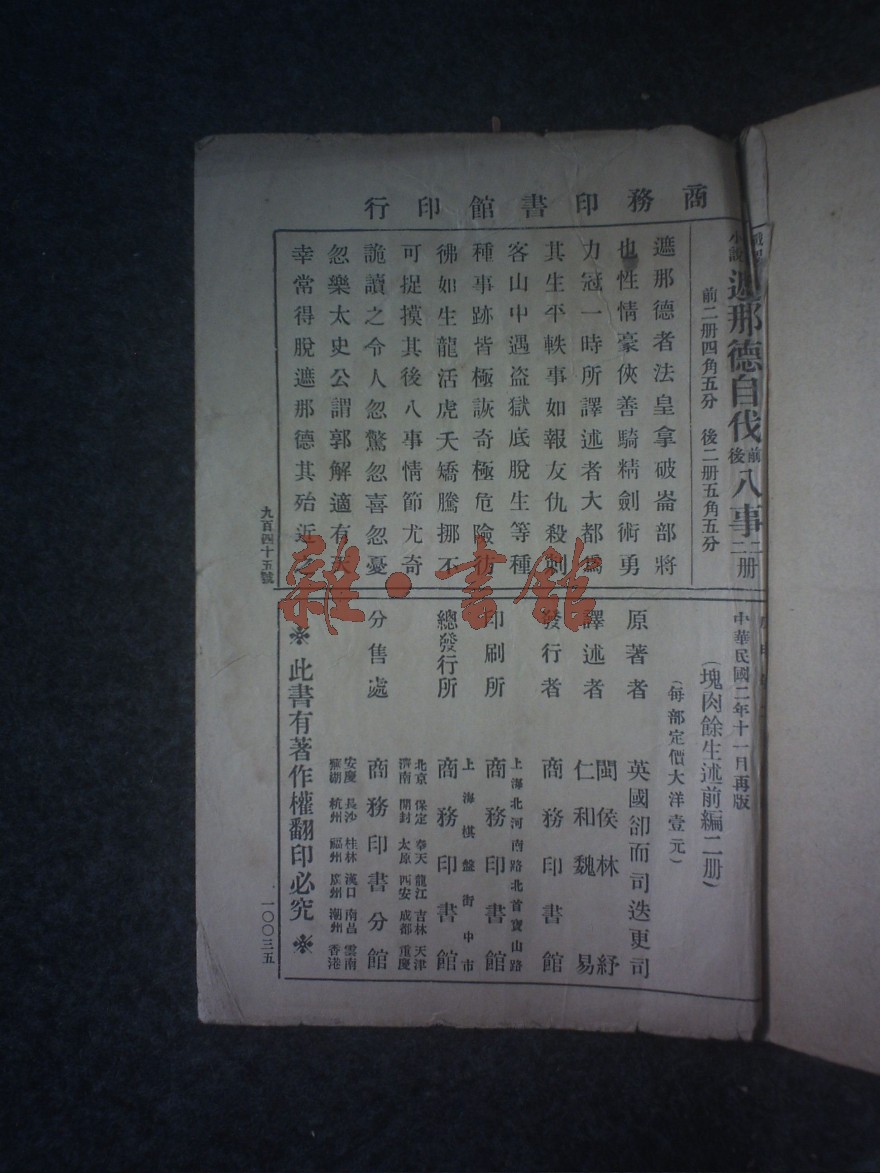 商務印書館印行
小說
遮那德自伐
前後
八事
二二册
前二册四角五分　後二册五角五分
遮那德者法皇拿破崙部將
也性情豪俠善騎精劍術勇
力冠一時所譯述者大都為
其生平軼事如報友仇殺刺
客山中遇盜獄底脫生等種
種事跡皆極詼奇極危險彷
彿如生龍活虎夭矯騰挪不
可捉摸其後八事情節尤奇
詭讀之令人忽驚忽喜忽憂
忽樂太史公謂郭解適有天
幸常得脫遮那德其殆近之
九百四十五號
中華民國二年十一月再版
(塊肉餘生述前編二册)
(每部定價大洋壹元)
原著者　英國卻而司迭更司
譯述者　閩侯林紓
仁和魏易
發行者　商務印書館
上海北河南路北首寶山路
印刷所　商務印書館
上海棋盤街中市
總發行所　商務印書館
北京　保定　奉天　龍江　吉林　天津
濟南　開封　太原　西安　成都　重慶
分售處　商務印書分館
安慶　長沙　桂林　漢口　南昌　雲南
蕪湖　杭州　福州　廣州　潮州　香港
※此書有著作權翻印必究※
一〇〇三五
雜·書館